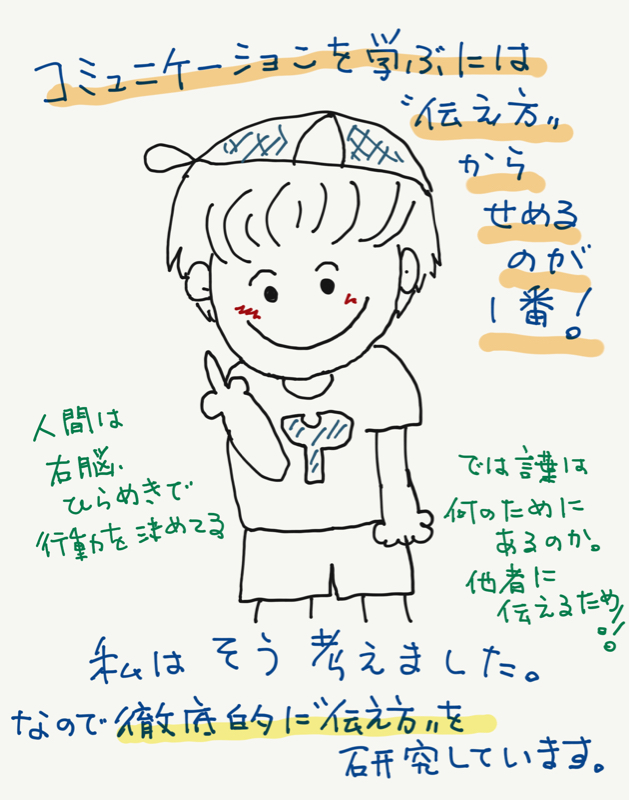 コミュニケーションを学ぶには
"伝え方"
から
せめる
のが
1番!
人間は
右脳、
ひらめきで
行動を決めてる
では言葉は
何のために
あるのか。
他者に
伝えるため!!
私はそう考えました。
なので徹底的に"伝え方"を
研究しています。